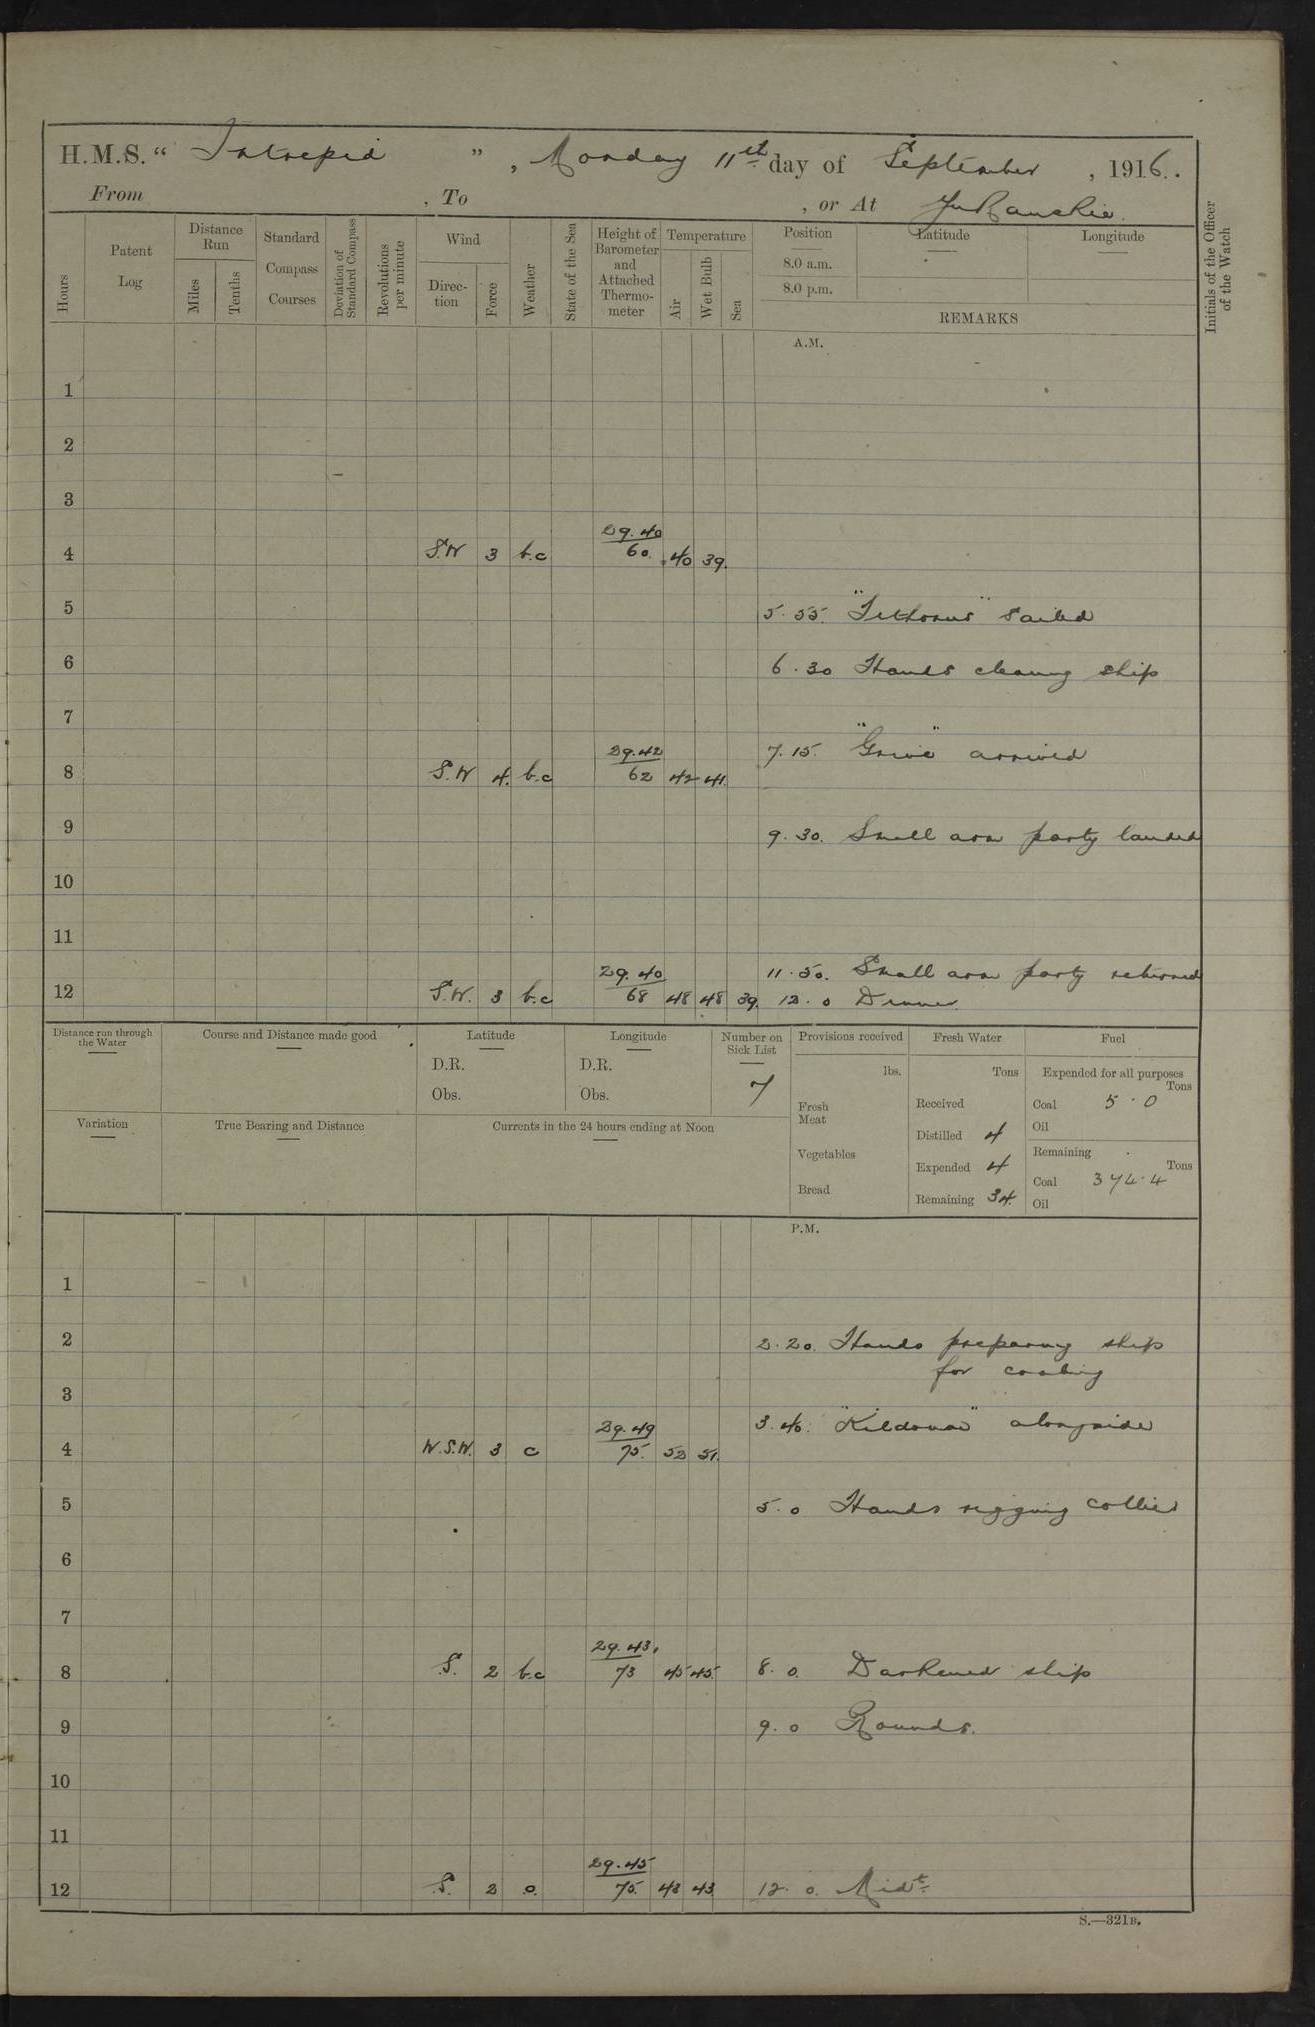 H.M.S. “ Intrepid ” , Monday 11th day of September , 1916.
From , To , or At Yukanskie.
Hours
Patent Log
Distance Run
Miles
Tenths
Standard Compass Courses
Deviation of Standard Compass
Revolutions per minute
Wind
Direction
Force
Weather
State of the Sea
Height of Barometer and Attached Thermometer
Temperature
Air
Wet Bulb
Sea
Position
8.0 a.m.
8.0 p.m.
Latitude
Longitude
REMARKS
Initials of the Officer of the Watch
A.M.
1
2
3
29.40
4 S.W 3 b.c 60. 40 39.
5 5.55. sailed
6 6.30 Hands cleaning ship
7
29.42 7.15. "Grive" arrived
8 S.W 4. b.c 62 42 41.
9 9.30. Small arm party landed
10
11
29.40 11.50. Small arm party returned
12 S.W. 3 b.c 68 48 48 39. 12.0 Dinner
Distance run through the Water
Course and Distance made good
Latitude
D.R.
Obs.
Longitude
D.R.
Obs.
Number on Sick List
7
Provisions received
lbs.
Fresh Meat
Vegetables
Bread
Fresh Water
Tons
Received
Distilled 4
Expended 4
Remaining 34.
Fuel
Expended for all purposes
Tons
Coal 5.0
Oil
Remaining
Tons
Coal 374.4
Oil
Variation
True Bearing and Distance
Currents in the 24 hours ending at Noon
P.M.
1
2 2.20. Hands preparing ship
for coaling
3
29.49 3.40. "Kildonan" alongside
4 W.S.W. 3 c 75. 52 51.
5 5.0 Hands rigging collier
6
7
29.43.
8 S. 2 b.c 73 45 45 8.0. Darkened ship
9 9.0 Rounds.
10
11
29.45
12 S. 2 o. 75. 43 43 12.0. Midt.
S.—321B.